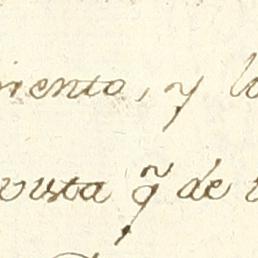 miento, y
vista q̃ de